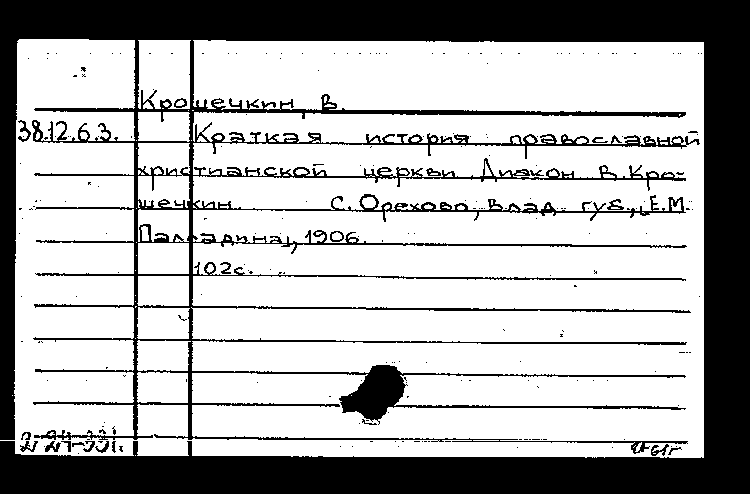 Крошечкин, В.
38.12.6.3. Краткая история православной
христианской церкви. Диякон В. Кро-
шечкин. С. Орехово, Влад. губ., Е.М.
1906.
102 с.